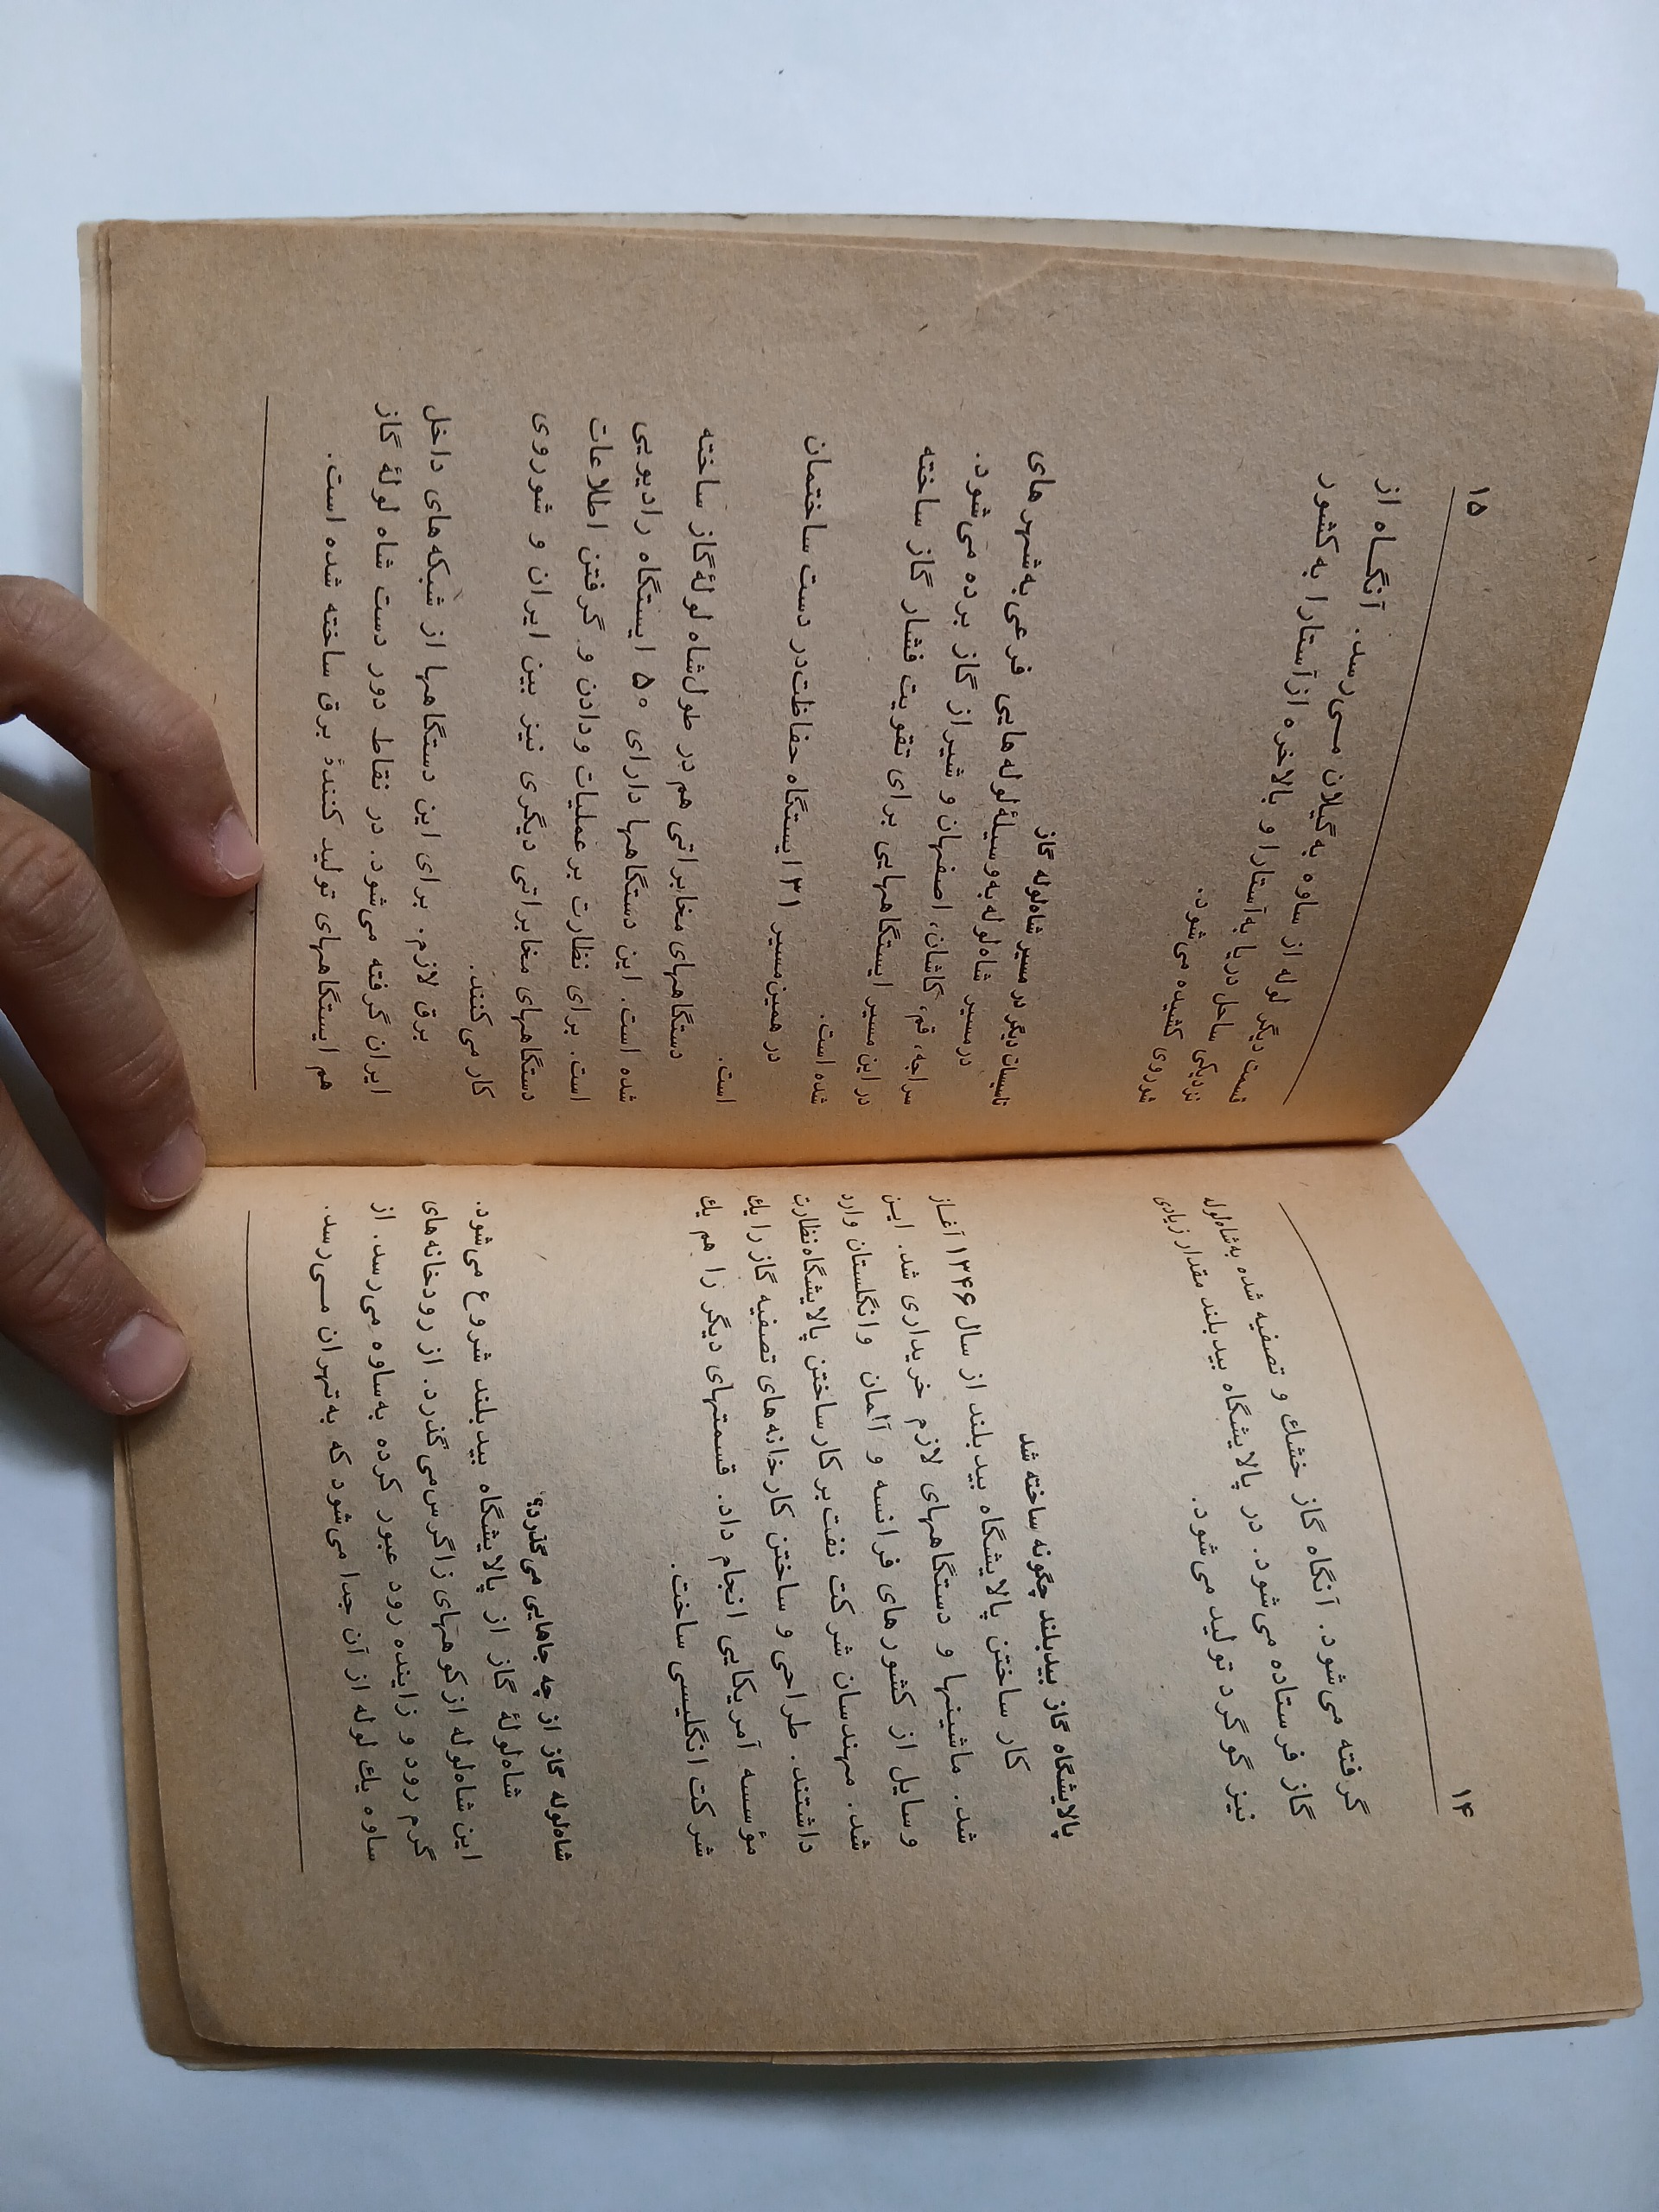 ۱۴
گرفته می‌شود. آنگاه گاز خشك و تصفیه شده به‌شاه‌لوله
گاز فرستاده می‌شود. در پالایشگاه بیدبلند مقدار زیادی
نیز گوگرد تولید می‌شود.
پالایشگاه گاز بیدبلند چگونه ساخته شد
کار ساختن پالایشگاه بیدبلند از سال ۱۳۴۶ آغاز
شد. ماشینها و دستگاههای لازم خریداری شد. این
وسایل از کشورهای فرانسه و آلمان وانگلستان وارد
شد. مهندسان شرکت نفت‌بر کار ساختن پالایشگاه نظارت
داشتند. طراحی و ساختن کارخانه‌های تصفیه گاز را یك
مؤسسه آمریکایی انجام داد. قسمتهای دیگر را هم یك
شرکت انگلیسی ساخت.
شاه‌لوله گاز از چه جاهایی می‌گذرد؟
شاه‌لولهٔ گاز از پالایشگاه بیدبلند شروع می‌شود.
این شاه‌لوله از کوههای زاگرس می‌گذرد. از رودخانه‌های
گرم رود و زاینده رود عبور کرده به‌ساوه می‌رسد. از
ساوه یك لوله از آن جدا می‌شود که به‌تهران مـی‌رسد.
۱۵
قسمت دیگر لوله از ساوه به‌گیلان مـی‌رسد. آنگـاه از
نزدیکی ساحل دریا به‌آستارا و بالاخره ازآستارا به‌کشور
شوروی کشیده می‌شود.
تاسیسات دیگر در مسیر شاه‌لوله گاز
درمسیر شاه‌لوله به‌وسیلهٔ‌لوله‌هایی فرعی به‌شهرهای
سراجه، قم، کاشان، اصفهان و شیراز گاز برده می‌شود.
در این مسیر ایستگاههایی برای تقویت فشار گاز ساخته
شده است.
در همین‌مسیر ۳۱ ایستگاه حفاظت‌در دست ساختمان
است.
دستگاههای مخابراتی هم‌در طول‌شاه لولهٔ‌گاز ساخته
شده است. این دستگاهها دارای ۵۰ ایستگاه رادیویی
است. برای نظارت برعملیات ودادن و گرفتن اطلاعات
دستگاههای مخابراتی دیگری نیز بین ایران و شوروی
کار می‌کنند.
برق لازم. برای این دستگاهها از شبکه‌های داخل
ایران گرفته می‌شود. در نقاط دور دست شاه لولهٔ گاز
هم ایستگاههای تولید کنندهٔ برق ساخته شده است.